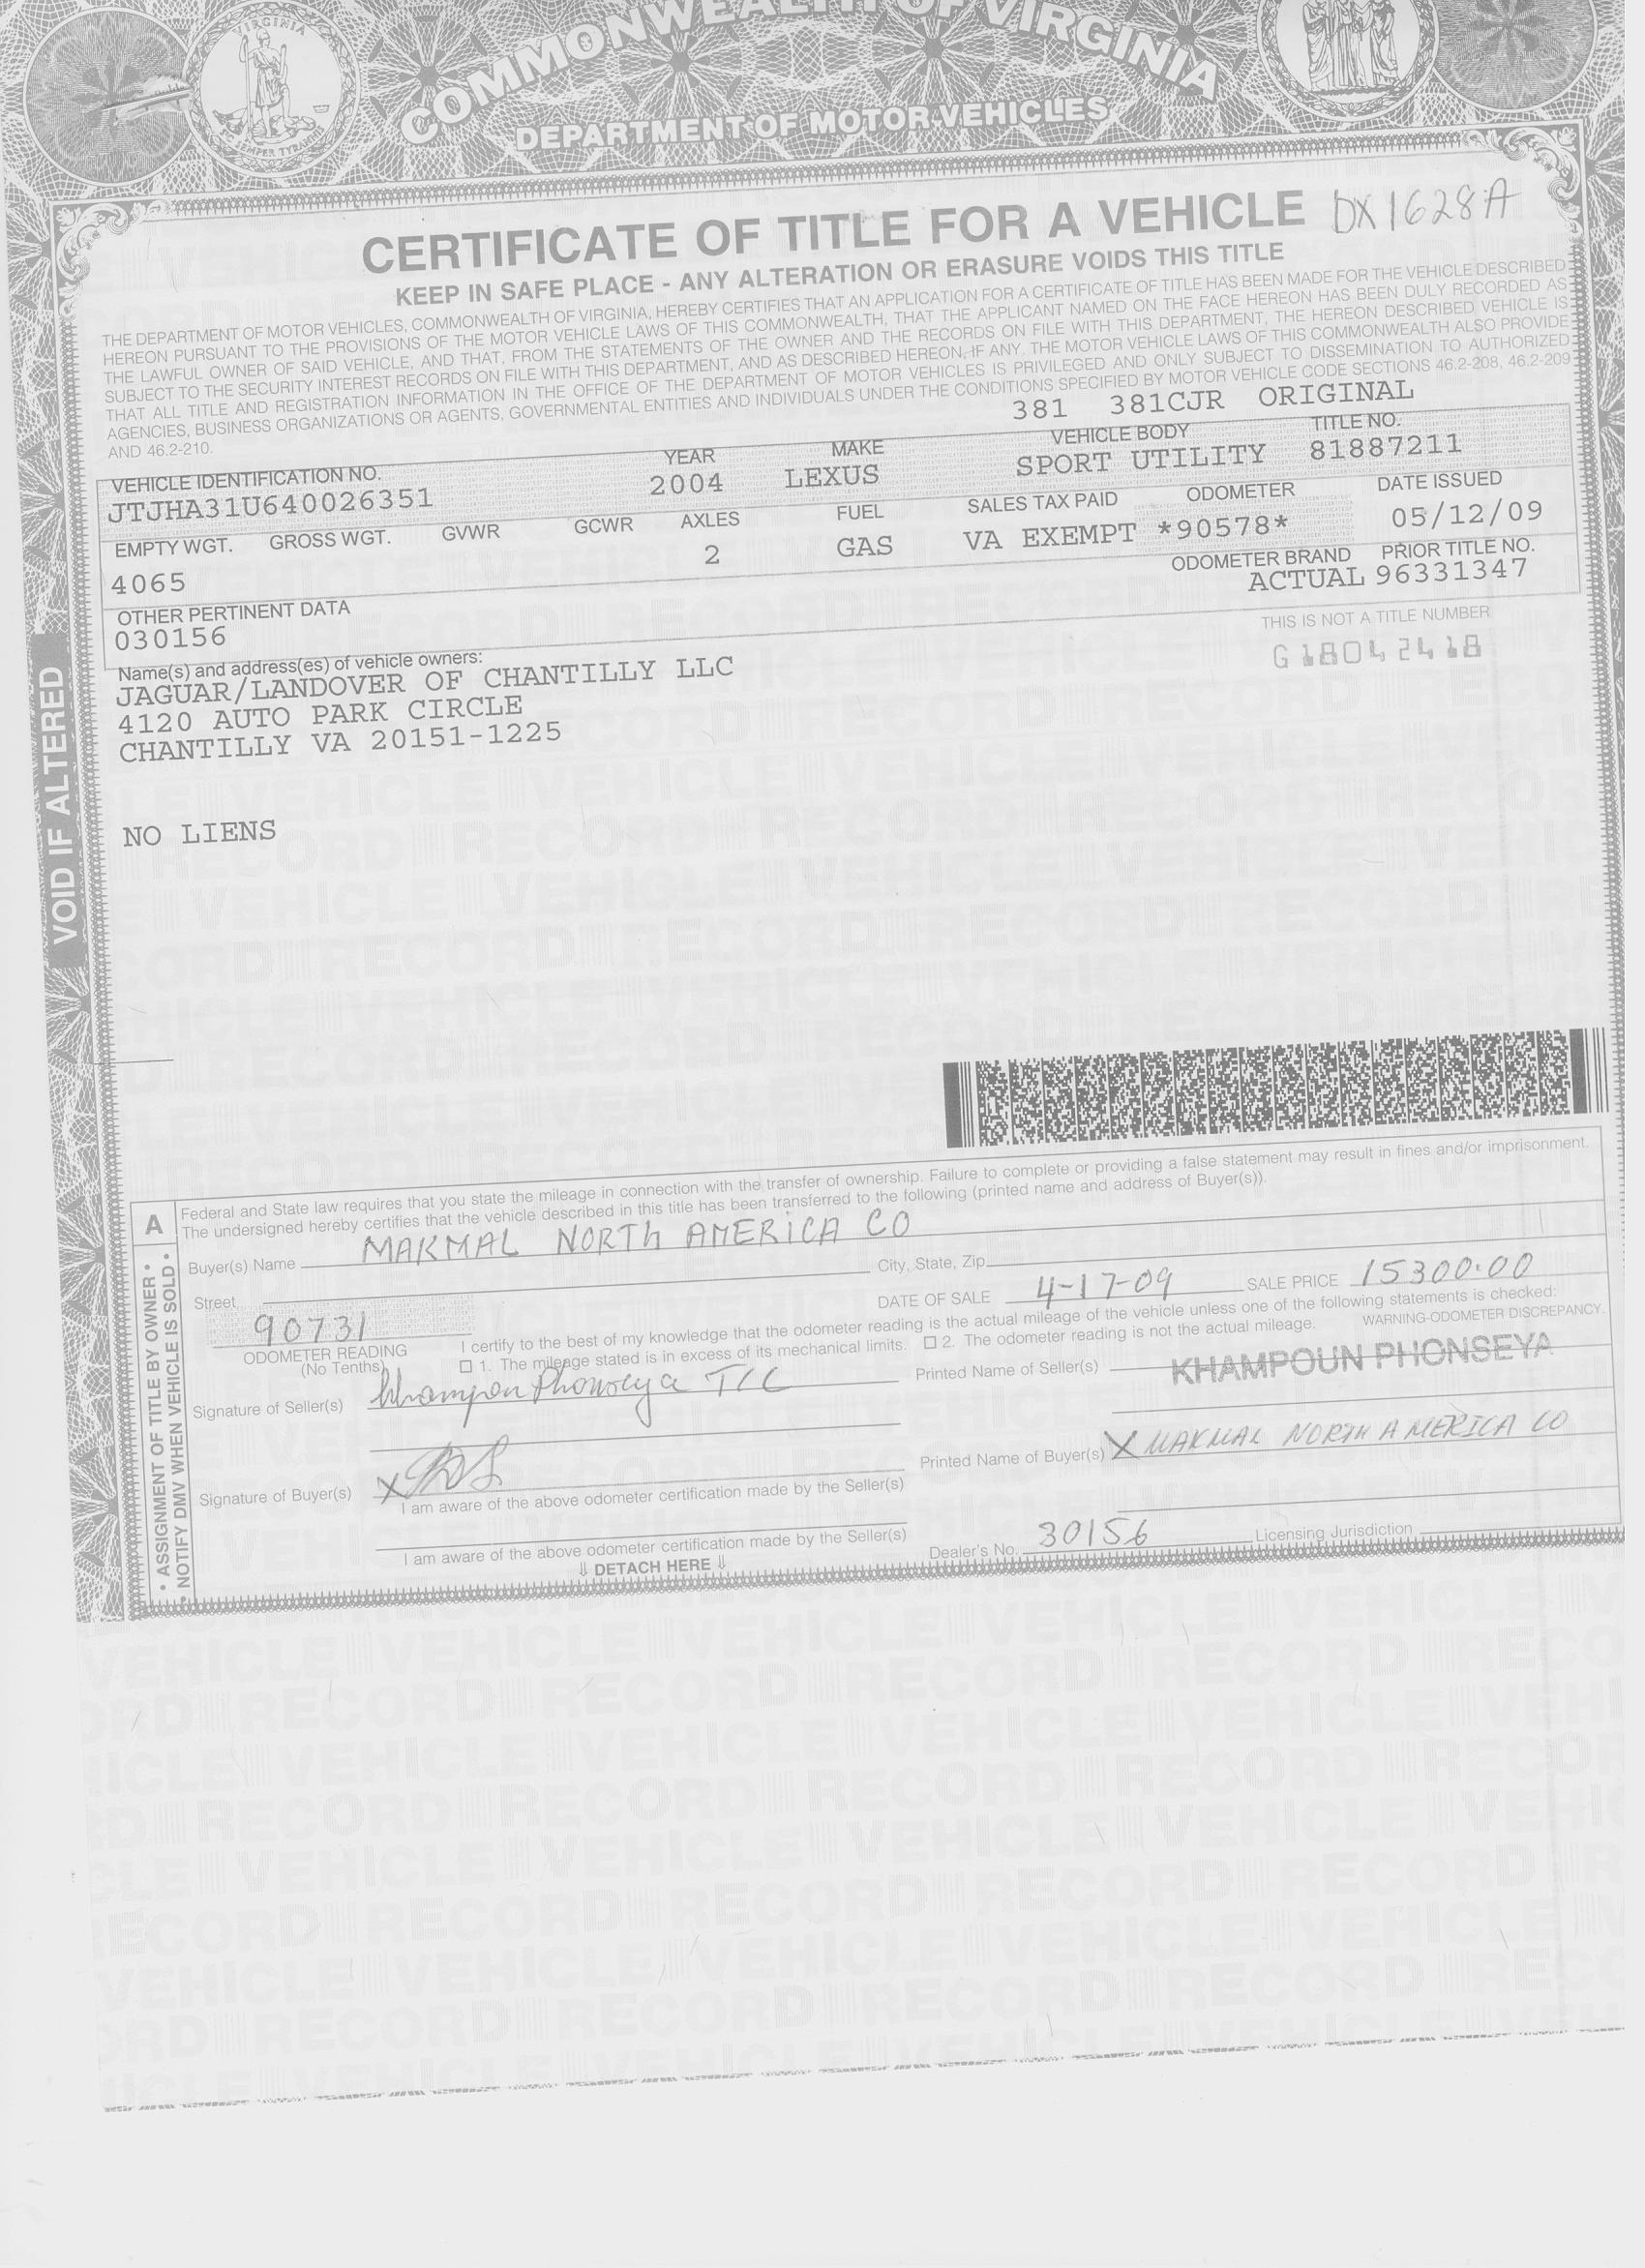 COMMONWEALTH OF VIRGINIA
DEPARTMENT OF MOTOR VEHICLES
VIRGINIA
SEMPER TYRANNIS
CERTIFICATE OF TITLE FOR A VEHICLE DX1628A
KEEP IN SAFE PLACE - ANY ALTERATION OR ERASURE VOIDS THIS TITLE
THE DEPARTMENT OF MOTOR VEHICLES, COMMONWEALTH OF VIRGINIA, HEREBY CERTIFIES THAT AN APPLICATION FOR A CERTIFICATE OF TITLE HAS BEEN MADE FOR THE VEHICLE DESCRIBED
HEREON PURSUANT TO THE PROVISIONS OF THE MOTOR VEHICLE LAWS OF THIS COMMONWEALTH, THAT THE APPLICANT NAMED ON THE FACE HEREON HAS BEEN DULY RECORDED AS
THE LAWFUL OWNER OF SAID VEHICLE, AND THAT, FROM THE STATEMENTS OF THE OWNER AND THE RECORDS ON FILE WITH THIS DEPARTMENT, THE HEREON DESCRIBED VEHICLE IS
SUBJECT TO THE SECURITY INTEREST RECORDS ON FILE WITH THIS DEPARTMENT, AND AS DESCRIBED HEREON, IF ANY. THE MOTOR VEHICLE LAWS OF THIS COMMONWEALTH ALSO PROVIDE
THAT ALL TITLE AND REGISTRATION INFORMATION IN THE OFFICE OF THE DEPARTMENT OF MOTOR VEHICLES IS PRIVILEGED AND ONLY SUBJECT TO DISSEMINATION TO AUTHORIZED
AGENCIES, BUSINESS ORGANIZATIONS OR AGENTS, GOVERNMENTAL ENTITIES AND INDIVIDUALS UNDER THE CONDITIONS SPECIFIED BY MOTOR VEHICLE CODE SECTIONS 46.2-208, 46.2-209
AND 46.2-210.
381 381CJR ORIGINAL
VEHICLE IDENTIFICATION NO. YEAR MAKE VEHICLE BODY TITLE NO.
JTJHA31U640026351 2004 LEXUS SPORT UTILITY 81887211
EMPTY WGT. GROSS WGT. GVWR GCWR AXLES FUEL SALES TAX PAID ODOMETER DATE ISSUED
4065 2 GAS VA EXEMPT *90578* 05/12/09
ODOMETER BRAND PRIOR TITLE NO.
ACTUAL 96331347
OTHER PERTINENT DATA
030156
THIS IS NOT A TITLE NUMBER
G18042418
Name(s) and address(es) of vehicle owners:
JAGUAR/LANDOVER OF CHANTILLY LLC
4120 AUTO PARK CIRCLE
CHANTILLY VA 20151-1225
NO LIENS
VOID IF ALTERED
A
• ASSIGNMENT OF TITLE BY OWNER •
• NOTIFY DMV WHEN VEHICLE IS SOLD •
Federal and State law requires that you state the mileage in connection with the transfer of ownership. Failure to complete or providing a false statement may result in fines and/or imprisonment.
The undersigned hereby certifies that the vehicle described in this title has been transferred to the following (printed name and address of Buyer(s)).
Buyer(s) Name MAKMAL NORTH AMERICA CO
Street City, State, Zip
DATE OF SALE 4-17-09 SALE PRICE 15300.00
90731
ODOMETER READING
(No Tenths)
I certify to the best of my knowledge that the odometer reading is the actual mileage of the vehicle unless one of the following statements is checked:
☐ 1. The mileage stated is in excess of its mechanical limits. ☐ 2. The odometer reading is not the actual mileage. WARNING-ODOMETER DISCREPANCY.
Signature of Seller(s) Khampoun Phonseya T/C Printed Name of Seller(s) KHAMPOUN PHONSEYA
Signature of Buyer(s) X Printed Name of Buyer(s) X MAKMAL NORTH AMERICA CO
I am aware of the above odometer certification made by the Seller(s)
I am aware of the above odometer certification made by the Seller(s) Dealer's No. 30156 Licensing Jurisdiction
⇓ DETACH HERE ⇓